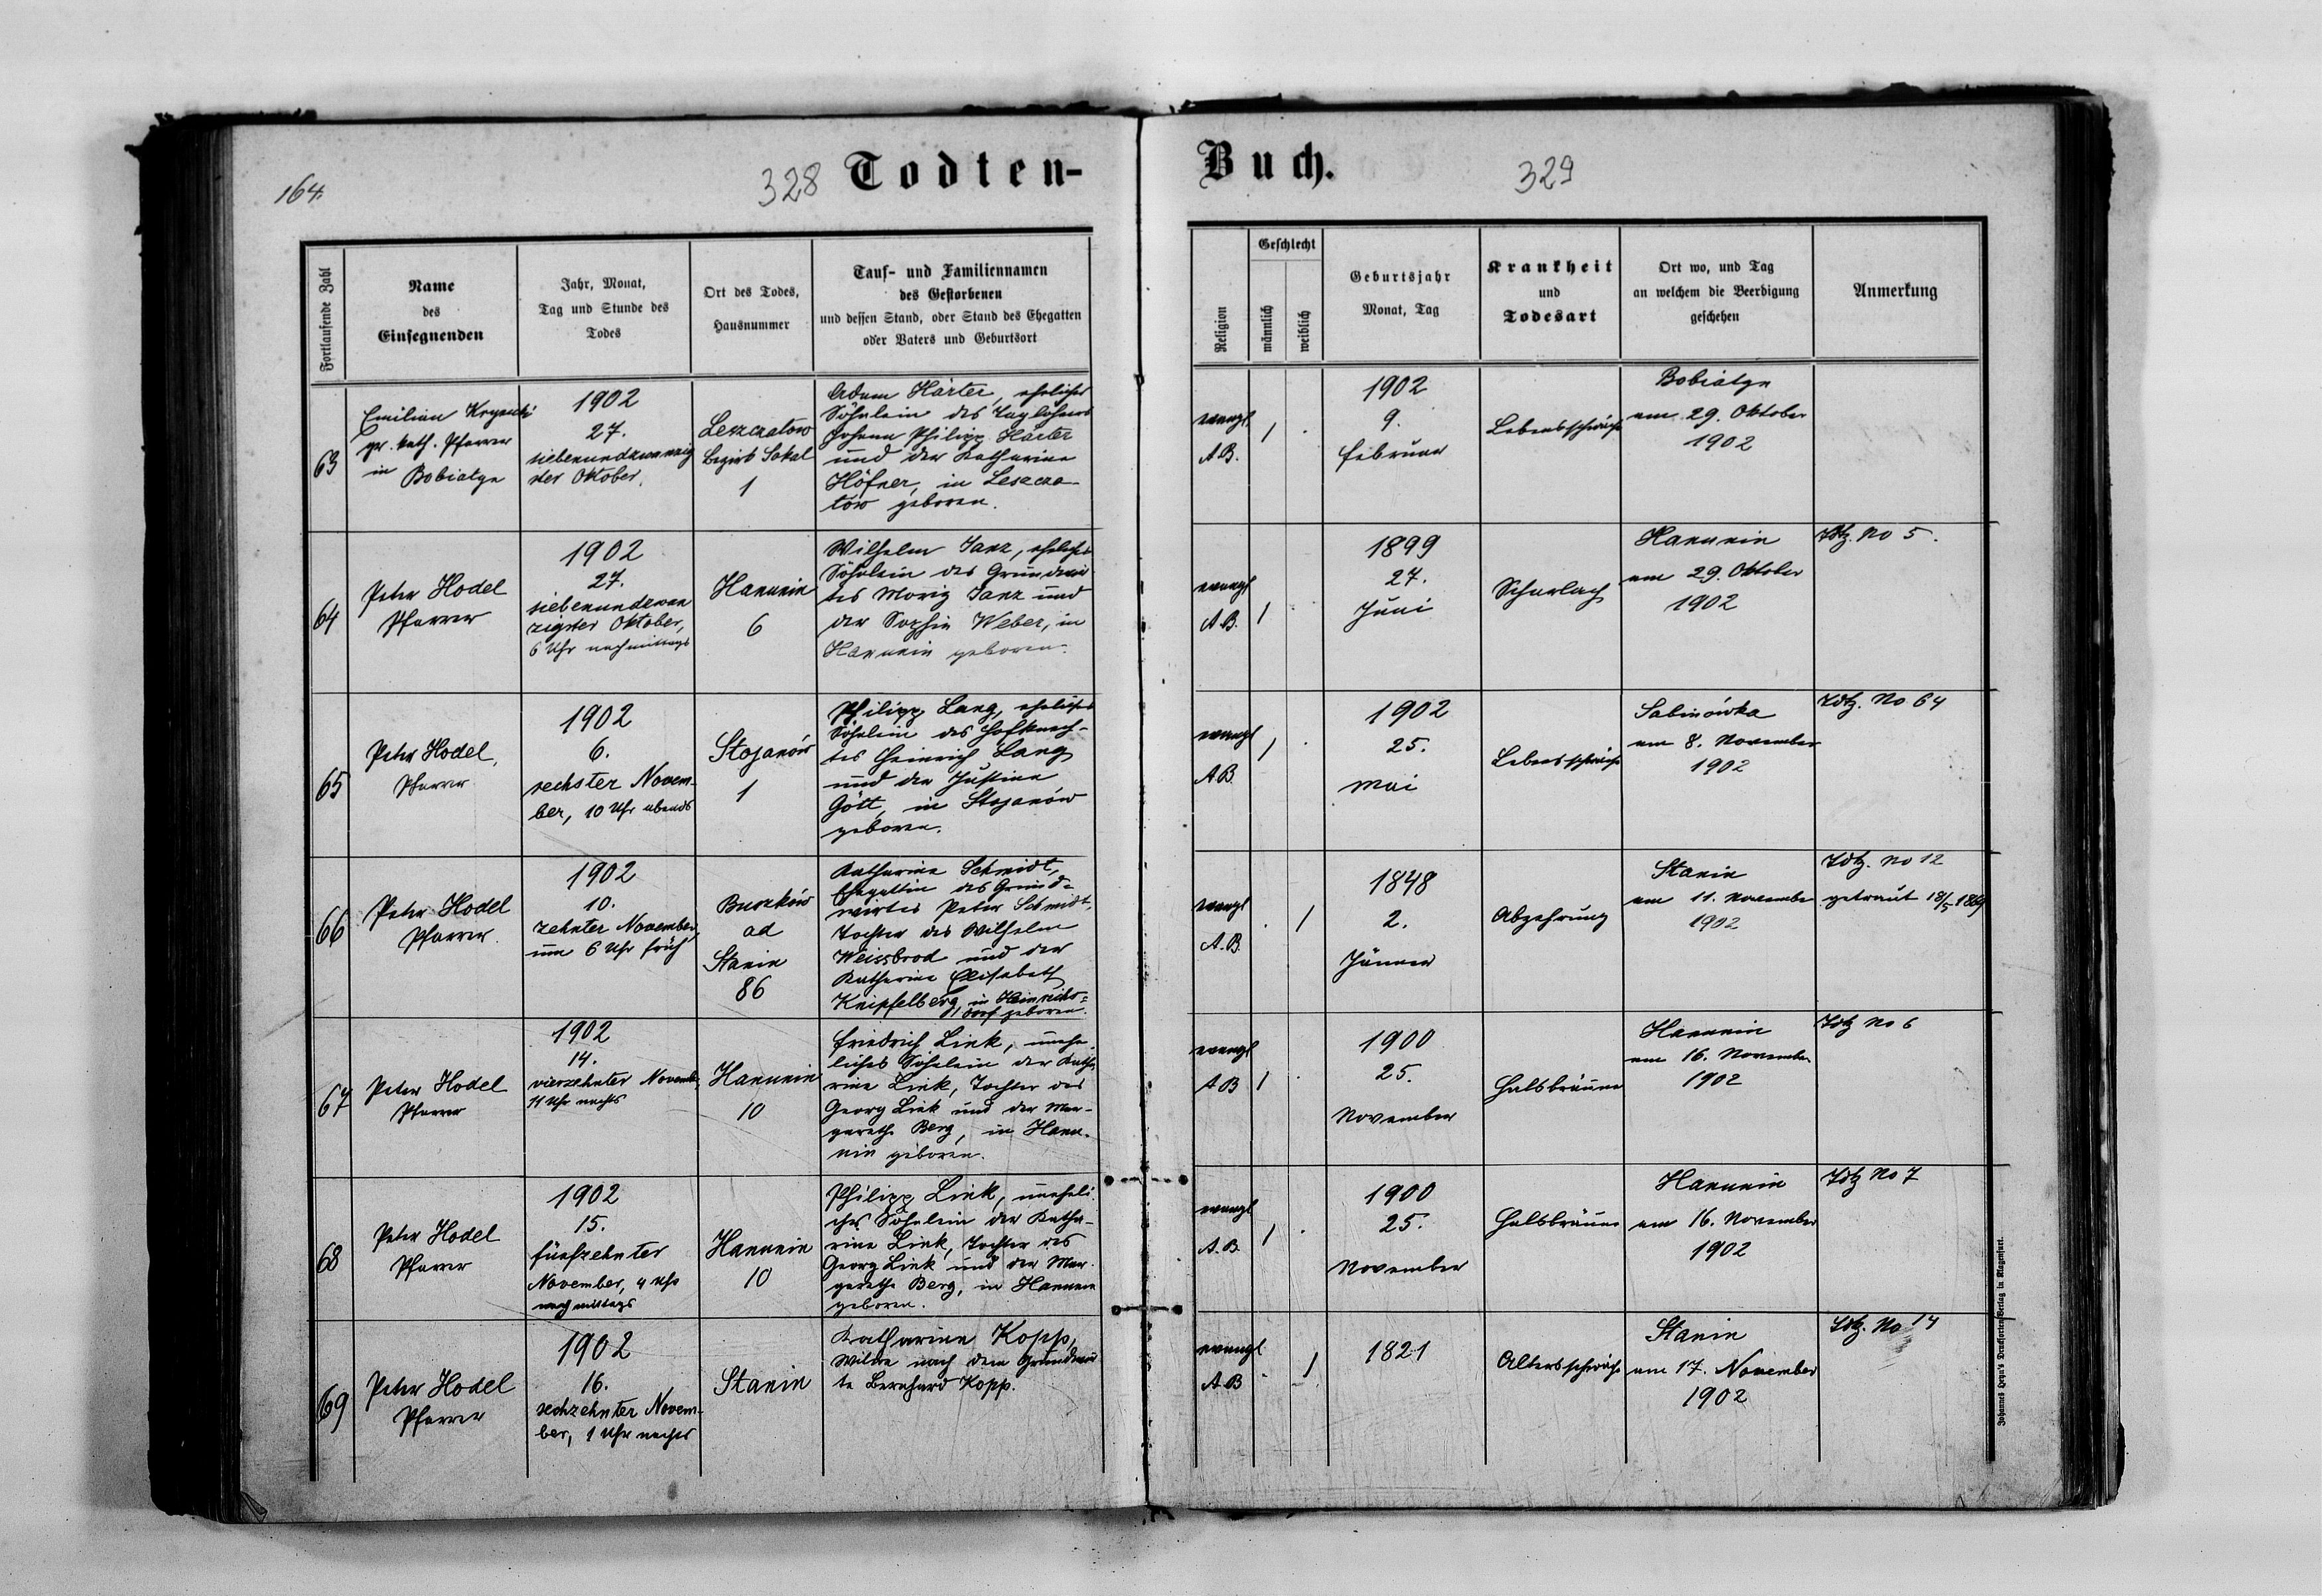 164.
328
Todten-
Buch.
329
Fortlaufende Zahl
Name
des
Einsegnenden
Jahr, Monat,
Tag und Stunde des
Todes
Ort des Todes,
Hausnummer
Tauf- und Familiennamen
des Gestorbenen
und dessen Stand, oder Stand des Ehegatten
oder Vaters und Geburtsort
Religion
Geschlecht
männlich
weiblich
Geburtsjahr
Monat, Tag
Krankheit
und
Todesart
Ort wo, und Tag
an welchem die Beerdigung
geschehen
Anmerkung
63
Emilian
gr. kath. Pfarrer
in Bobiatyn
1902
27.
siebenundzwanzig
ster Oktober.
Leszczatow
Bezirk Sokal
1
Adam Härter, eheliches
Söhnlein des Taglöhners
Johann Philipp Härter
und der Katharina
Höfner, in Leszcza-
tow geboren.
evangl
A.B.
/
1902
9.
Februar
Lebensschwäche
Bobiatyn
am 29. Oktober
1902
64
Peter Hodel
Pfarrer
1902
27.
siebenundzwan
zigster Oktober,
6 Uhr nachmittags
Hanunin
6
Wilhelm Janz, eheliches
Söhnlein des Grundwir
tes Moriz Janz und
der Sophie Weber, in
Hanunin geboren.
evangl
A.B.
/
1899
27.
Juni
Scharlach
Hanunin
am 29. Oktober
1902
No 5.
65
Peter Hodel,
Pfarrer
1902
6.
sechster Novem-
ber, 10 Uhr abends
Stojanów
1
Philipp Lang, eheliches
Söhnlein des Hofknech-
tes Heinrich Lang
und der Justina
Gött, in Stojanów
geboren.
evangl
A.B.
/
1902
25.
Mai
Lebensschwäche
Sabinówka
am 8. November
1902
No 64
66
Peter Hodel
Pfarrer.
1902
10.
zehnter November,
um 6 Uhr früh
Buszków
ad
Stanin
86
Katharina Schmidt,
Ehegattin des Grund=
wirtes Peter Schmidt,
Tochter des Wilhelm
Weissbrod und der
Katharina Elisabeth
Knipfelberg, in Heinrichs=
dorf geboren.
evangl
A.B.
/
1848
2.
Jänner
Abzehrung
Stanin
am 11. November
1902
No 12
getraut 18/5 1869
67
Peter Hodel
Pfarrer
1902
14.
vierzehnter Novemb.
11 Uhr nachts
Hanunin
10
Friedrich Link, unehe-
liches Söhnlein der Katha
rina Link, Tochter des
Georg Link und der Mar-
garetha Berg, in Hanu-
nin geboren.
evangl
A.B
/
1900
25.
November
Halsbräune
Hanunin
am 16. November
1902
No 6
68
Peter Hodel
Pfarrer
1902
15.
fünfzehnter
November, 4 Uhr
nachmittags
Hanunin
10
Philipp Link, uneheli-
ches Söhnlein der Katha-
rina Link, Tochter des
Georg Link und der Mar-
garetha Berg, in Hanunin
geboren.
evangl
A.B.
/
1900
25.
November
Halsbräune
Hanunin
am 16. November
1902
No 7
69
Peter Hodel
Pfarrer
1902
16.
sechzehnter Novem-
ber, 1 Uhr nachts
Stanin
Katharina Kopp,
Witwe nach dem Grundwir
te Bernhard Kopp.
evangl
A.B
/
1821
Altersschwäche
Stanin
am 17. November
1902
No 14
Johannes Heyn's Drucksorten-Verlag in Klagenfurt.